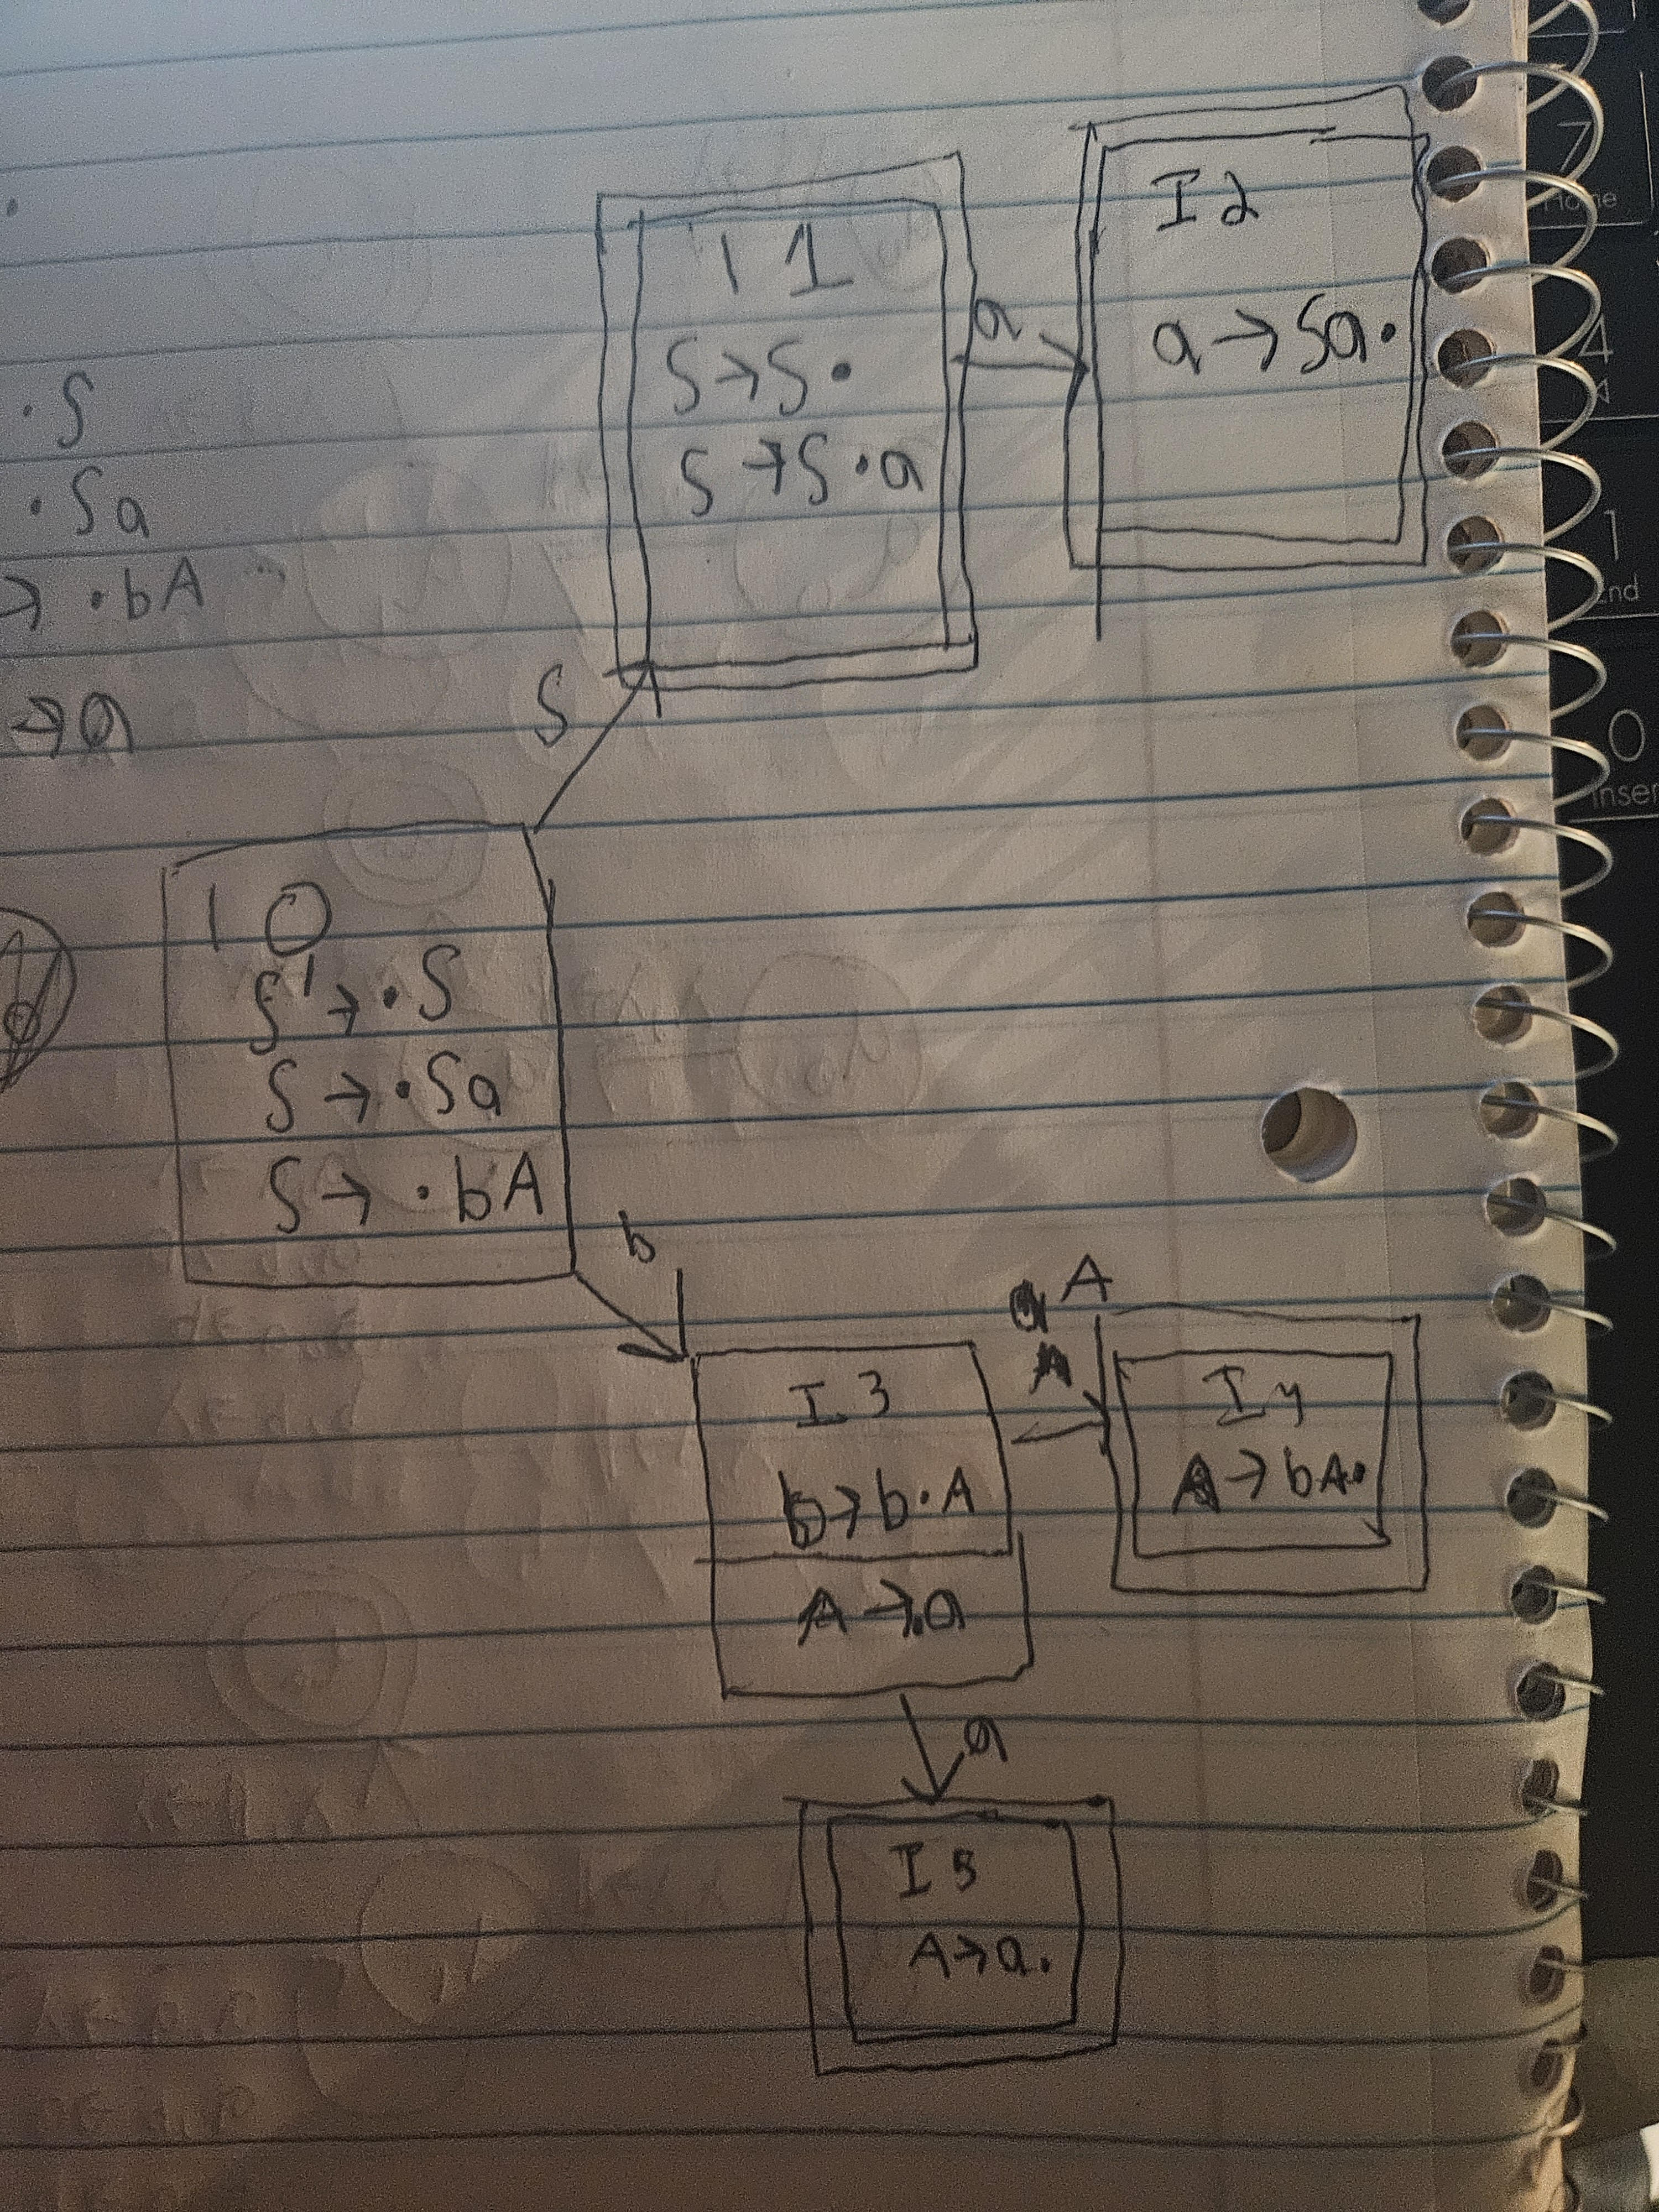 I 2
a → Sa·
I 1
S → S·
S → S·a
a
·S
·Sa
→ ·bA
→ a
S
I 0
S' → ·S
S → ·Sa
S → ·bA
b
A
I 3
b → b·A
A → .a
I 4
A → bA·
a
I 5
A → a.
7
Home
4
1
End
0
Inser